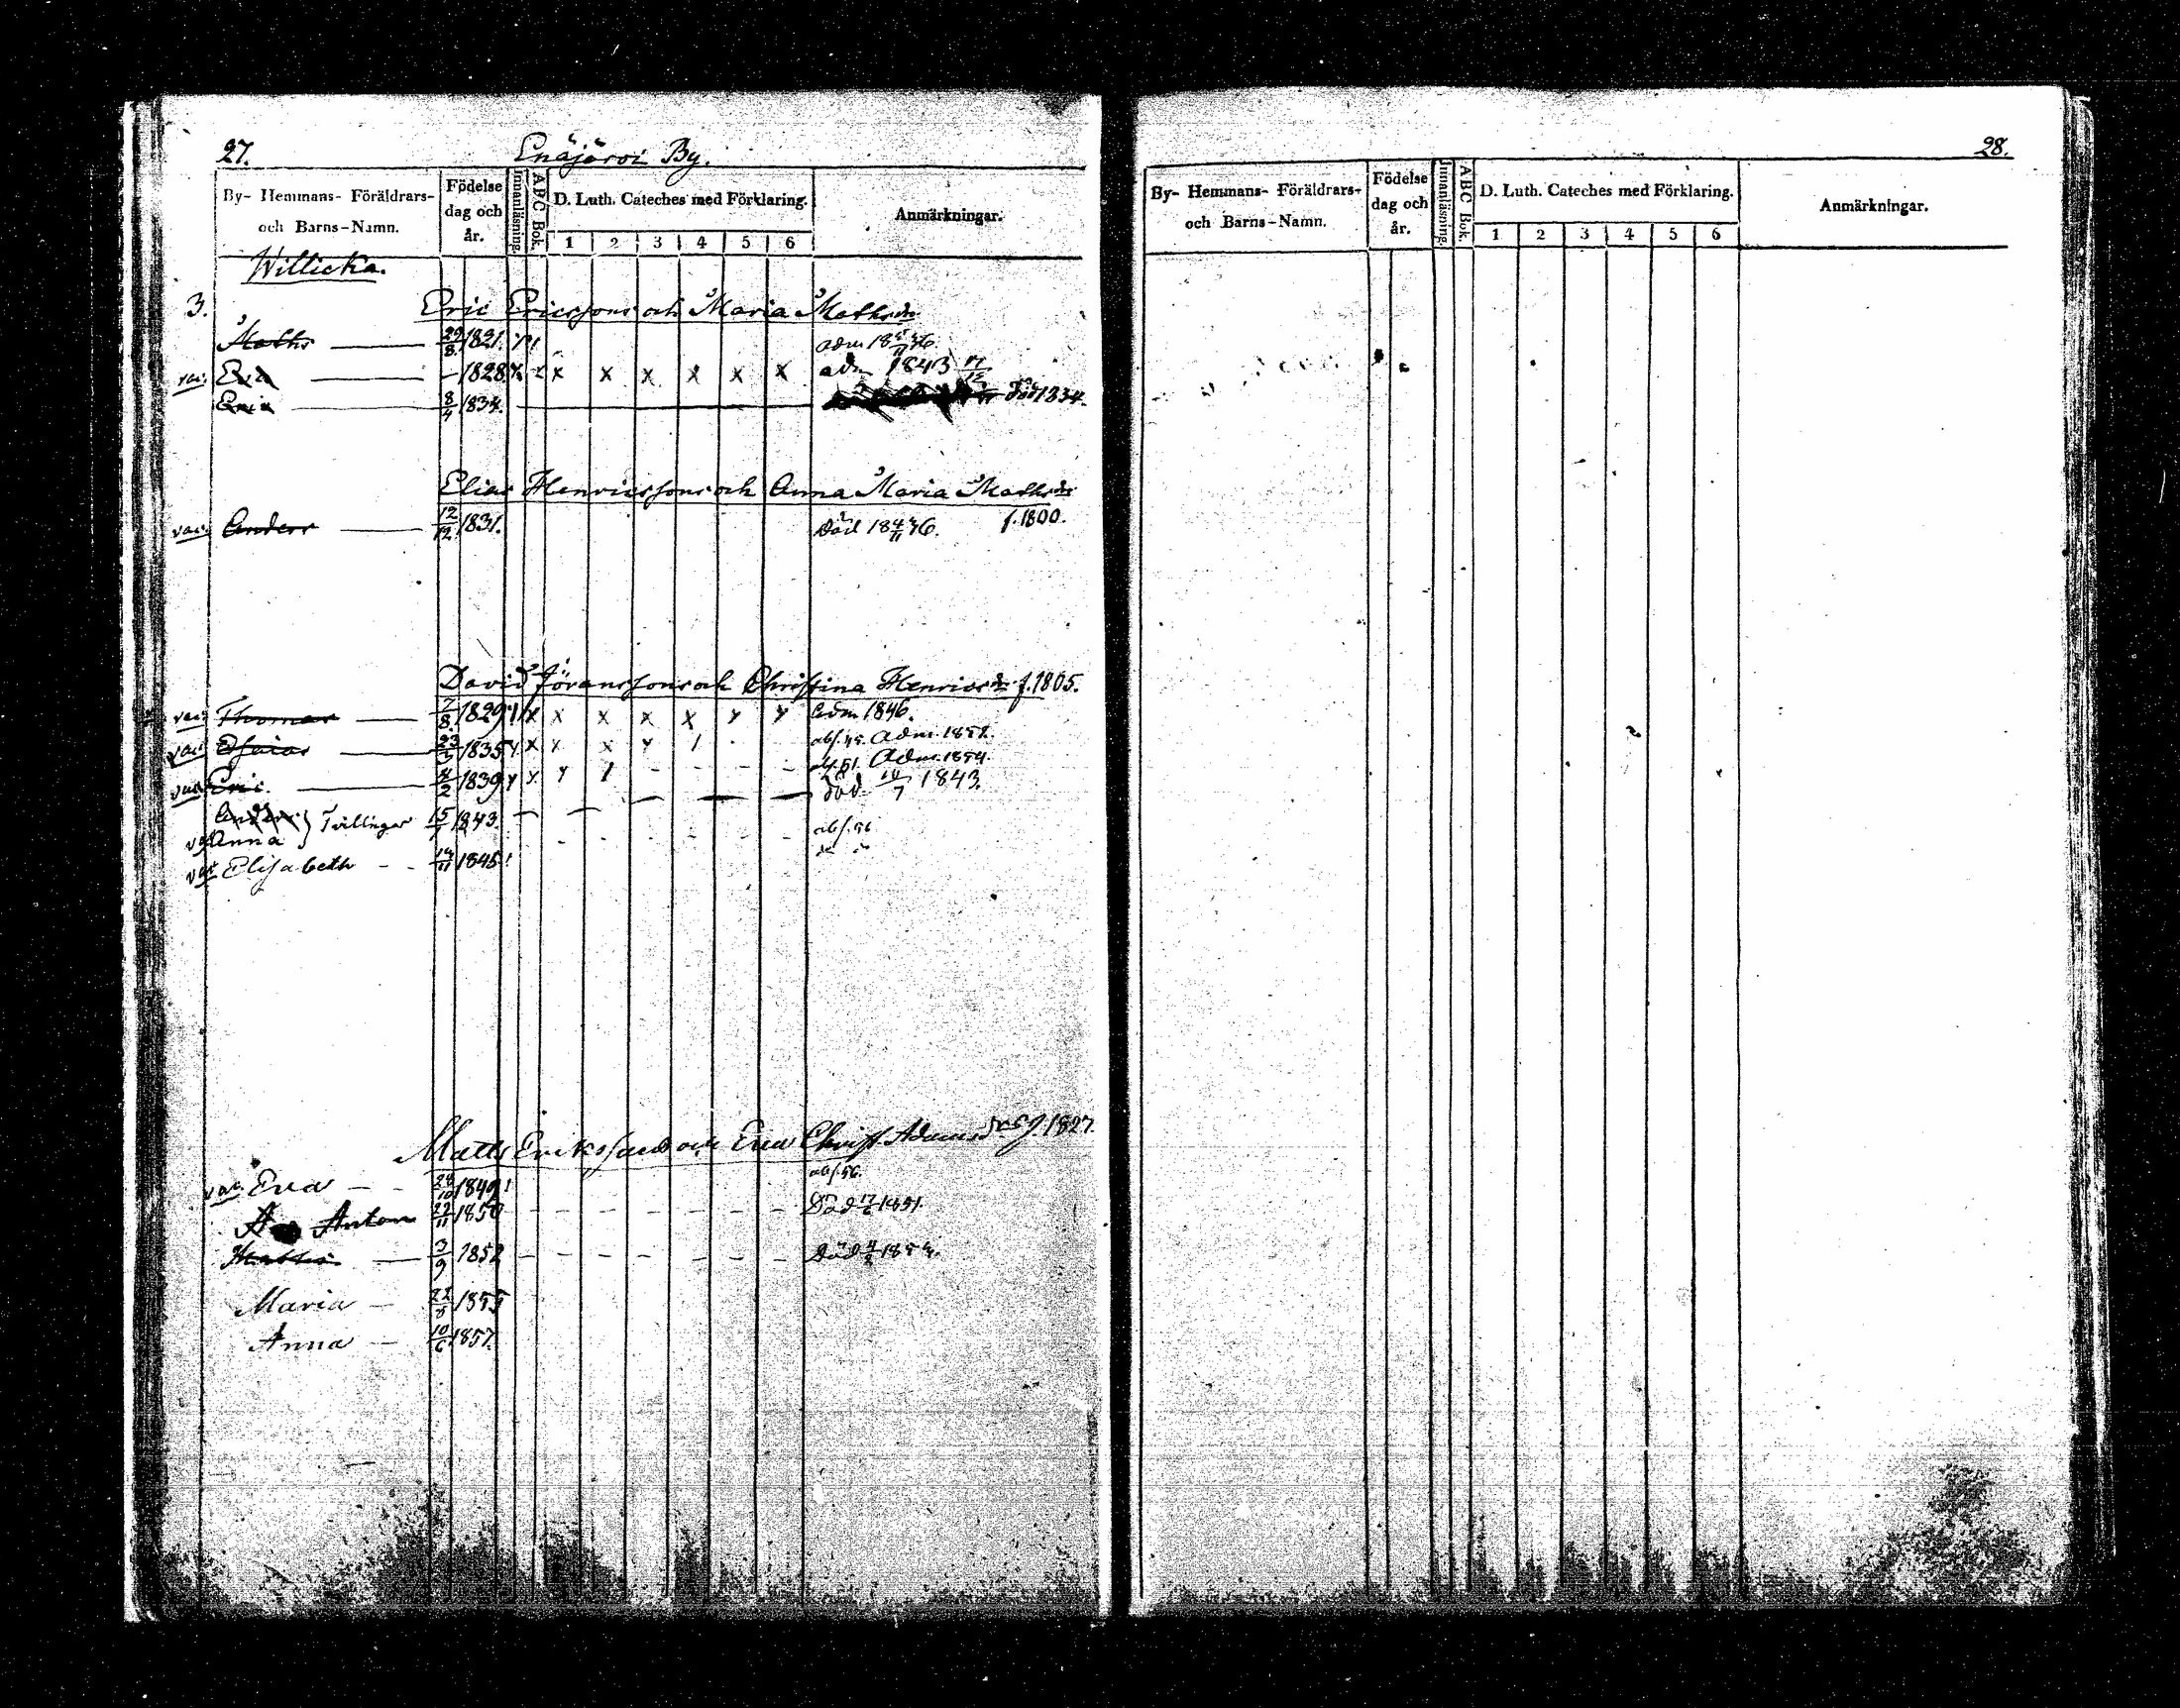 27.
Enäjärvi By.
By- Hemmans- Föräldrars- och Barns-Namn.
Födelse dag och år.
Innanläsning.
ABC Bok.
D. Luth. Cateches med Förklaring.
1 2 3 4 5 6
Anmärkningar.
Willicka.
3. Eric Ericssons och Maria Mathsdr
Maths 29/8 1821. adm 18 46.
vac. Eric — 1828 x x x x x x adm 1843 17/12
Eric 8/4 1834. död 1834.
Elias Henricssons och Anna Maria Mathsdr
f. 1800.
vac. Anders 12/12 1831. Död 18 4/11 46.
David Göranssons och Christina Henricsdr f. 1805.
vac. Thomas 7/8 1829 x x x x x x x Adm 1846.
vac. Esaias 23/3 1835 x x x x Adm. 1852.
vac. Eric. 4/2 1839 Adm. 1854.
Anders } Tvillingar 15/1 1843. död 10/7 1843.
vac Anna abs. 56
vac Elisabeth 14/11 1845
Matts Erikssons och Eva Christ. Adamsdr f. 1827.
vac. Eva 24/10 1849 abs. 56.
Anton 22/11 1850 Död 17/6 1851.
3/9 1852 Död 4/2 1854.
Maria 22/8 1855
Anna 10/6 1857.
28.
By- Hemmans- Föräldrars- och Barns-Namn.
Födelse dag och år.
Innanläsning.
ABC Bok.
D. Luth. Cateches med Förklaring.
1 2 3 4 5 6
Anmärkningar.